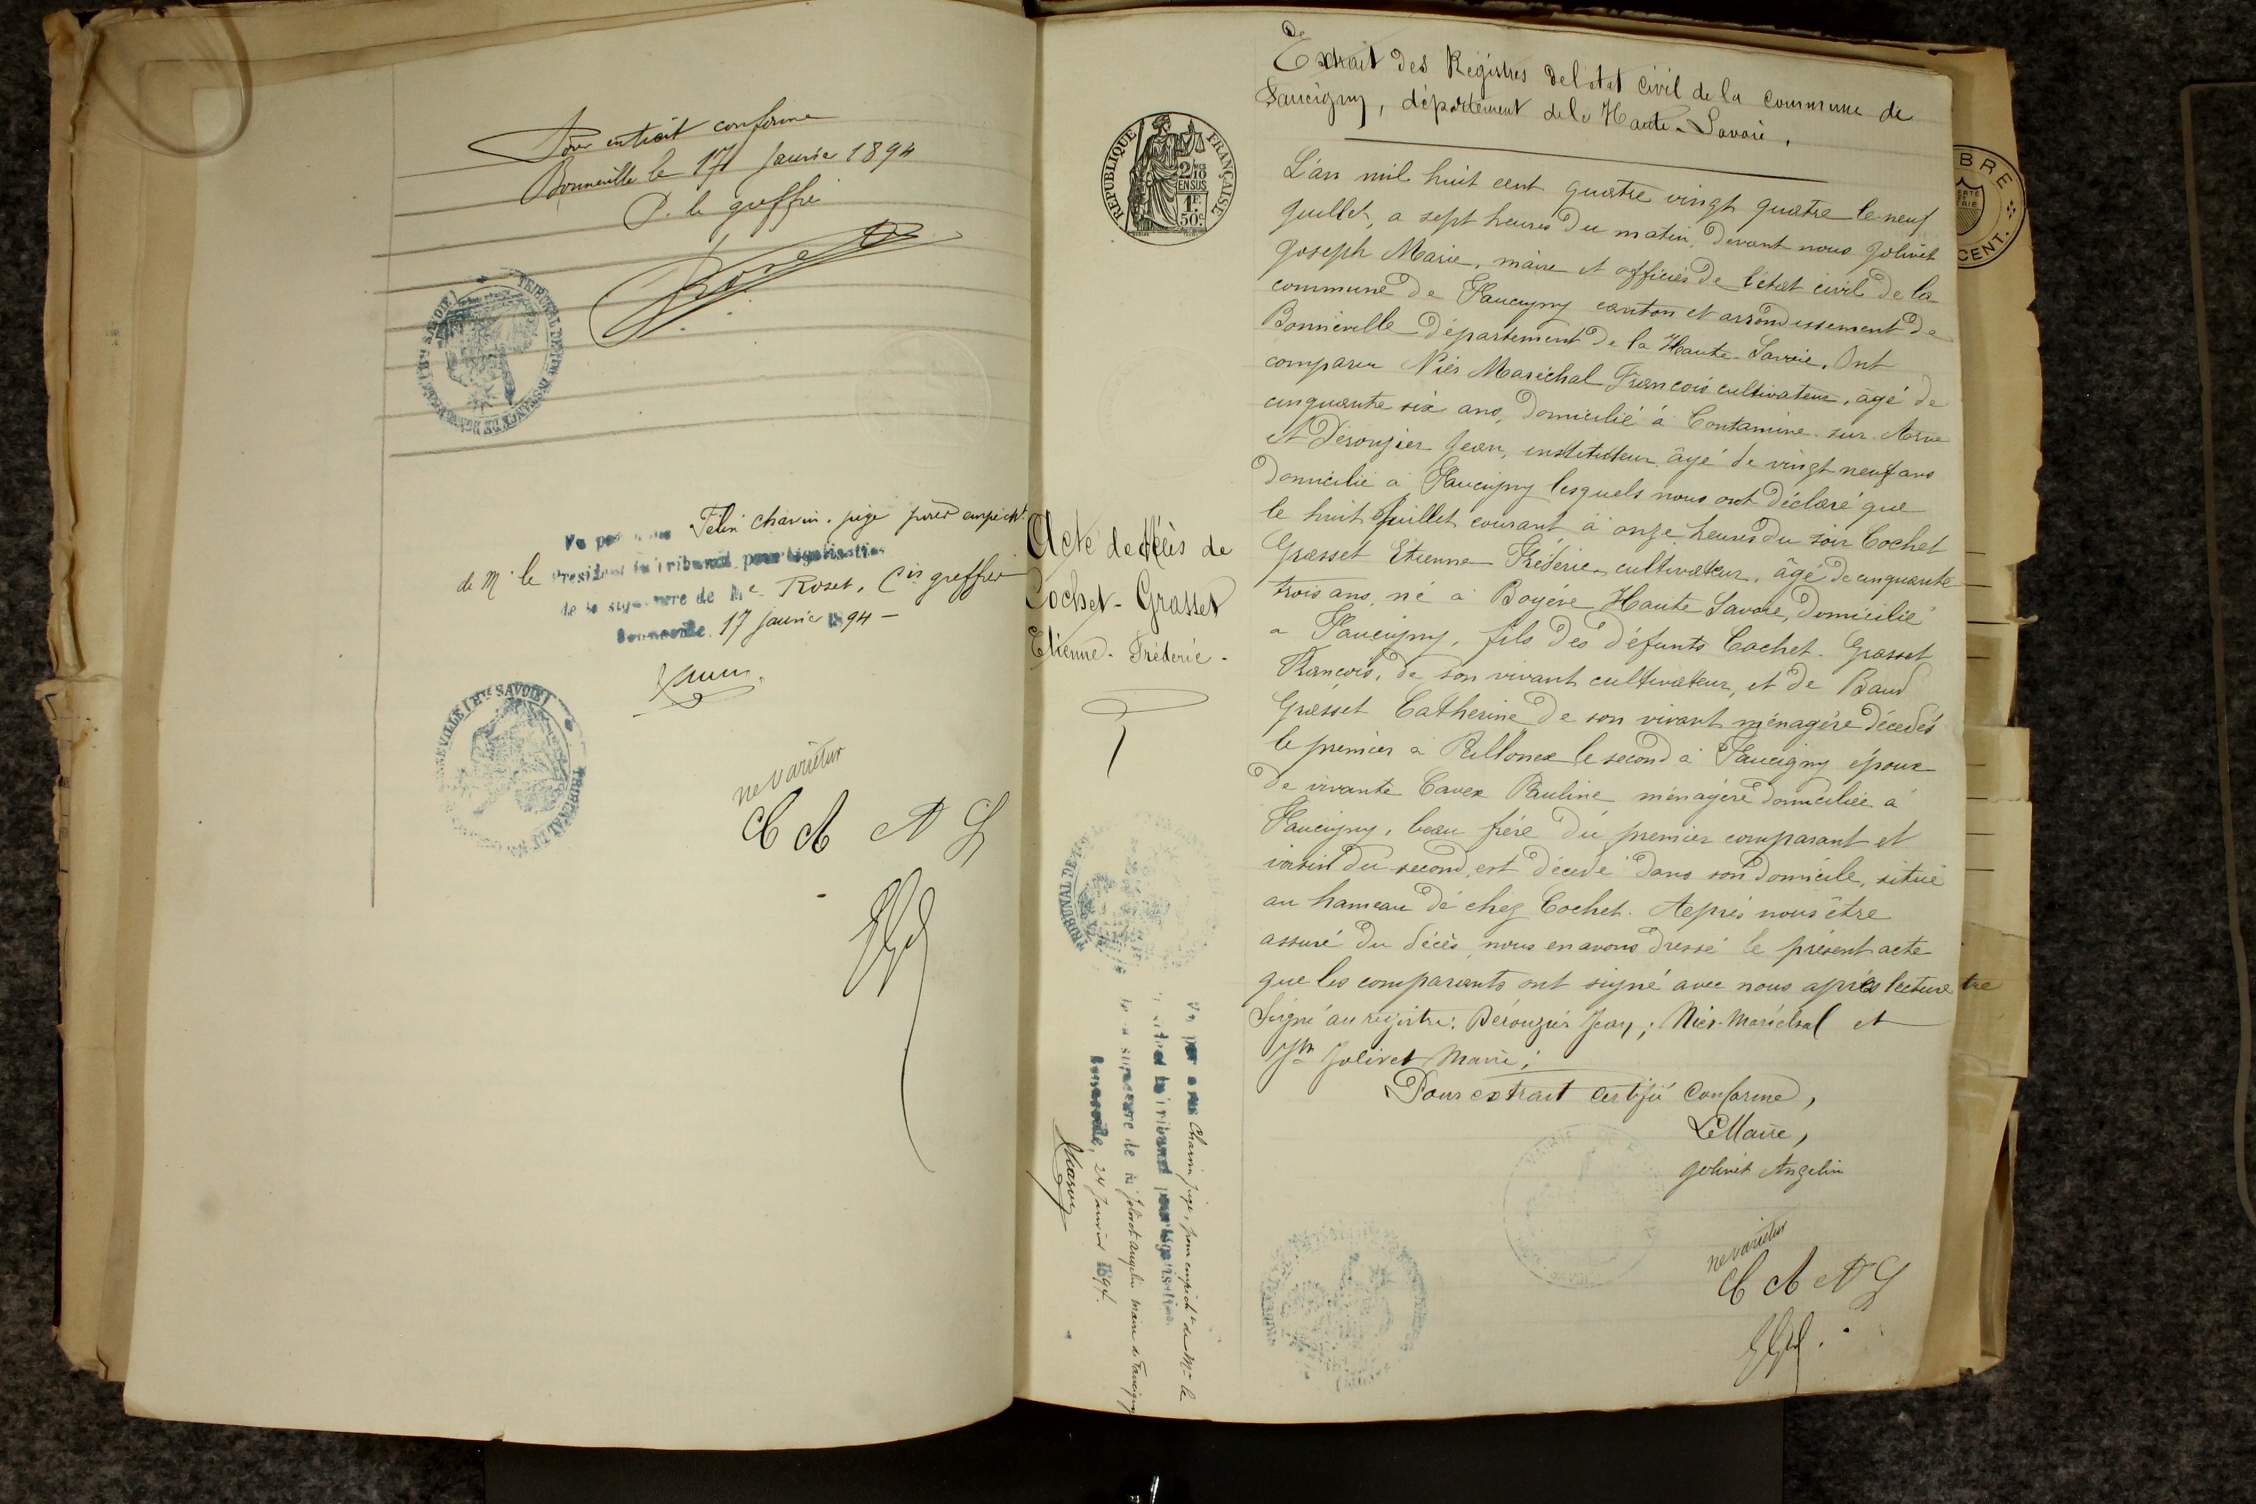 Pour extrait conforme
Bonneville le 17 Janvier 1894
P. le greffier
Roset
TRIBUNAL DE 1ERE INSTANCE DE BONNEVILLE (HTE SAVOIE)
Vu par nous Félix Chavin, juge pour empêcht
de Mr le Président du tribunal pour légalisation
de la signature de Me Roset, Cis greffier
Bonneville 17 Janvier 1894 -
ne varietur
REPUBLIQUE FRANÇAISE
2/10
EN SUS
1F.
50c.
Acte de décès de
Cochet-Grasset
Etienne-Fréderic-
Vu par nous Chavin juge, pour empêcht de Mr le
Président du tribunal pour légalisation
de la signature de M. Jolivet Angelin maire de Faucigny
Bonneville, 24 Janvier 1894.
Extrait des Régistres de l'état civil de la Commune de
Faucigny, département de la Haute-Savoie.
L'an mil huit cent quatre vingt quatre le neuf
Juillet, a sept heures du matin, devant nous Jolivet
Joseph Marie, maire et officier de l'état civil de la
commune de Faucigny canton et arrondissement de
Bonneville département de la Haute-Savoie. Ont
comparu Nier Maréchal François cultivateur, âgé de
cinquante six ans, domicilié à Contamine-sur-Arve
et Dérouzier Jean, instituteur, âgé de vingt neuf ans
domicilié à Faucigny lesquels nous ont déclaré que
le huit Juillet courant à onze heures du soir Cochet
Grasset Etienne Fréderic, cultivateur, âgé de cinquante
trois ans, né à Bogève Haute Savoie, domicilié
a Faucigny, fils des défunts Cochet-Grasset
François, de son vivant cultivateur, et de Baud
Grasset Catherine de son vivant ménagère décedés
le premier à Fillonex le second à Faucigny époux
de vivante Cavex Pauline ménagère domiciliée à
Faucigny, beau frère du premier comparant et
voisin du second, est décedé dans son domicile, situé
au hameau de chez Cochet. Après nous être
assuré du décès, nous en avons dressé le présent acte
que les comparants ont signé avec nous après lecture
Signé au registre: Dérouzier Jean; Nier-Maréchal et
Jh Jolivet Maire;
Pour extrait certifié conforme,
Le Maire,
Jolivet Angelin
ne varietur